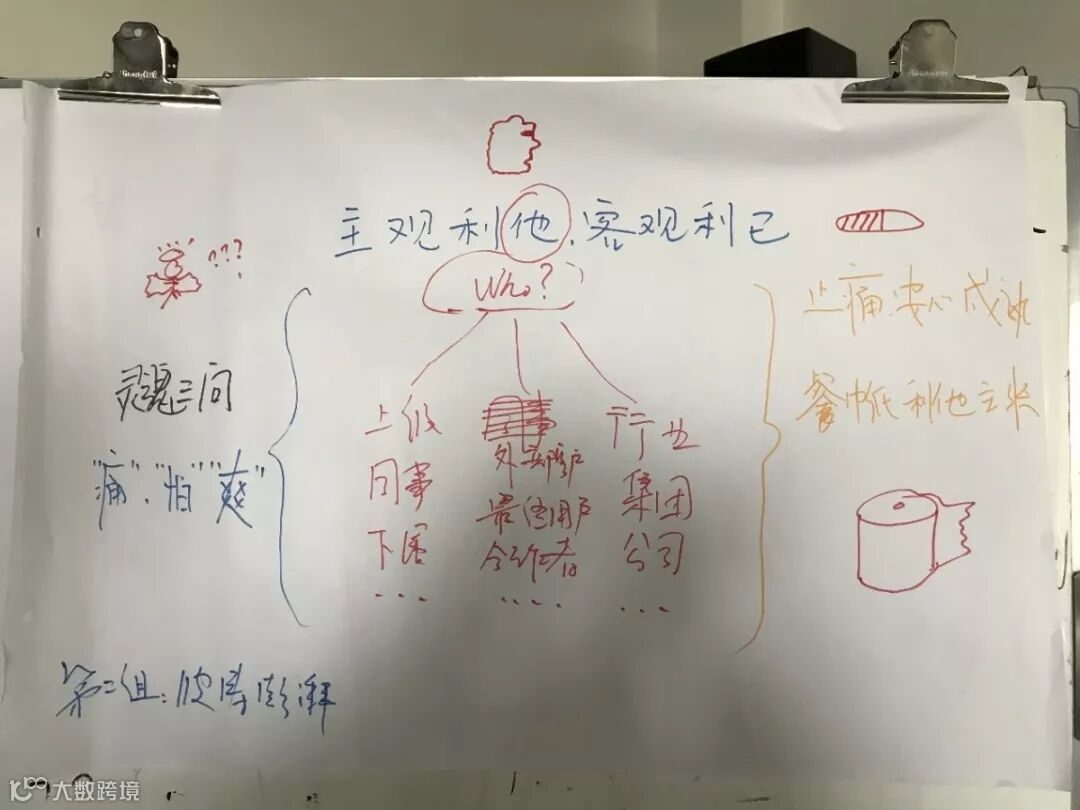 主观利他、客观利己
Who?
???
灵魂三问
"痛"、"怕""爽"
上级
同事
下属
...
外部客户
最终用户
合作者
....
行业
集团
公司
...
止痛、安心、成就
餐巾纸利他主张
第二组：波涛澎湃
大数跨境